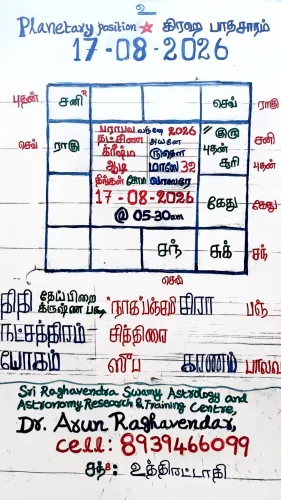 உ
Planetary position ☆ கிரஹ பாதசாரம்
17-08-2026
புதன் சனி R செவ் ராகு
பராபவ வருஷ 2026
தட்சிண அயனே
செவ் ராகு க்ரீஷ்ம ருதௌ குரு சனி
புதன் புதன்
ஆடி மாஸே 32 சூரி
திங்கள் சோம வாஸரே
17-08-2026 கேது கேது
@ 05-30am
சந் சுக் சந்
செவ்
திதி தேய்பிறை நாகபஞ்சமி
நட்சத்திரம் சித்திரை
யோகம் கரணம் பாலவ
Sri Raghavendra Swamy Astrology and
Astronomy Research & Training Centre,
Dr. Arun Raghavendar,
cell: 8939466099
உத்திரட்டாதி